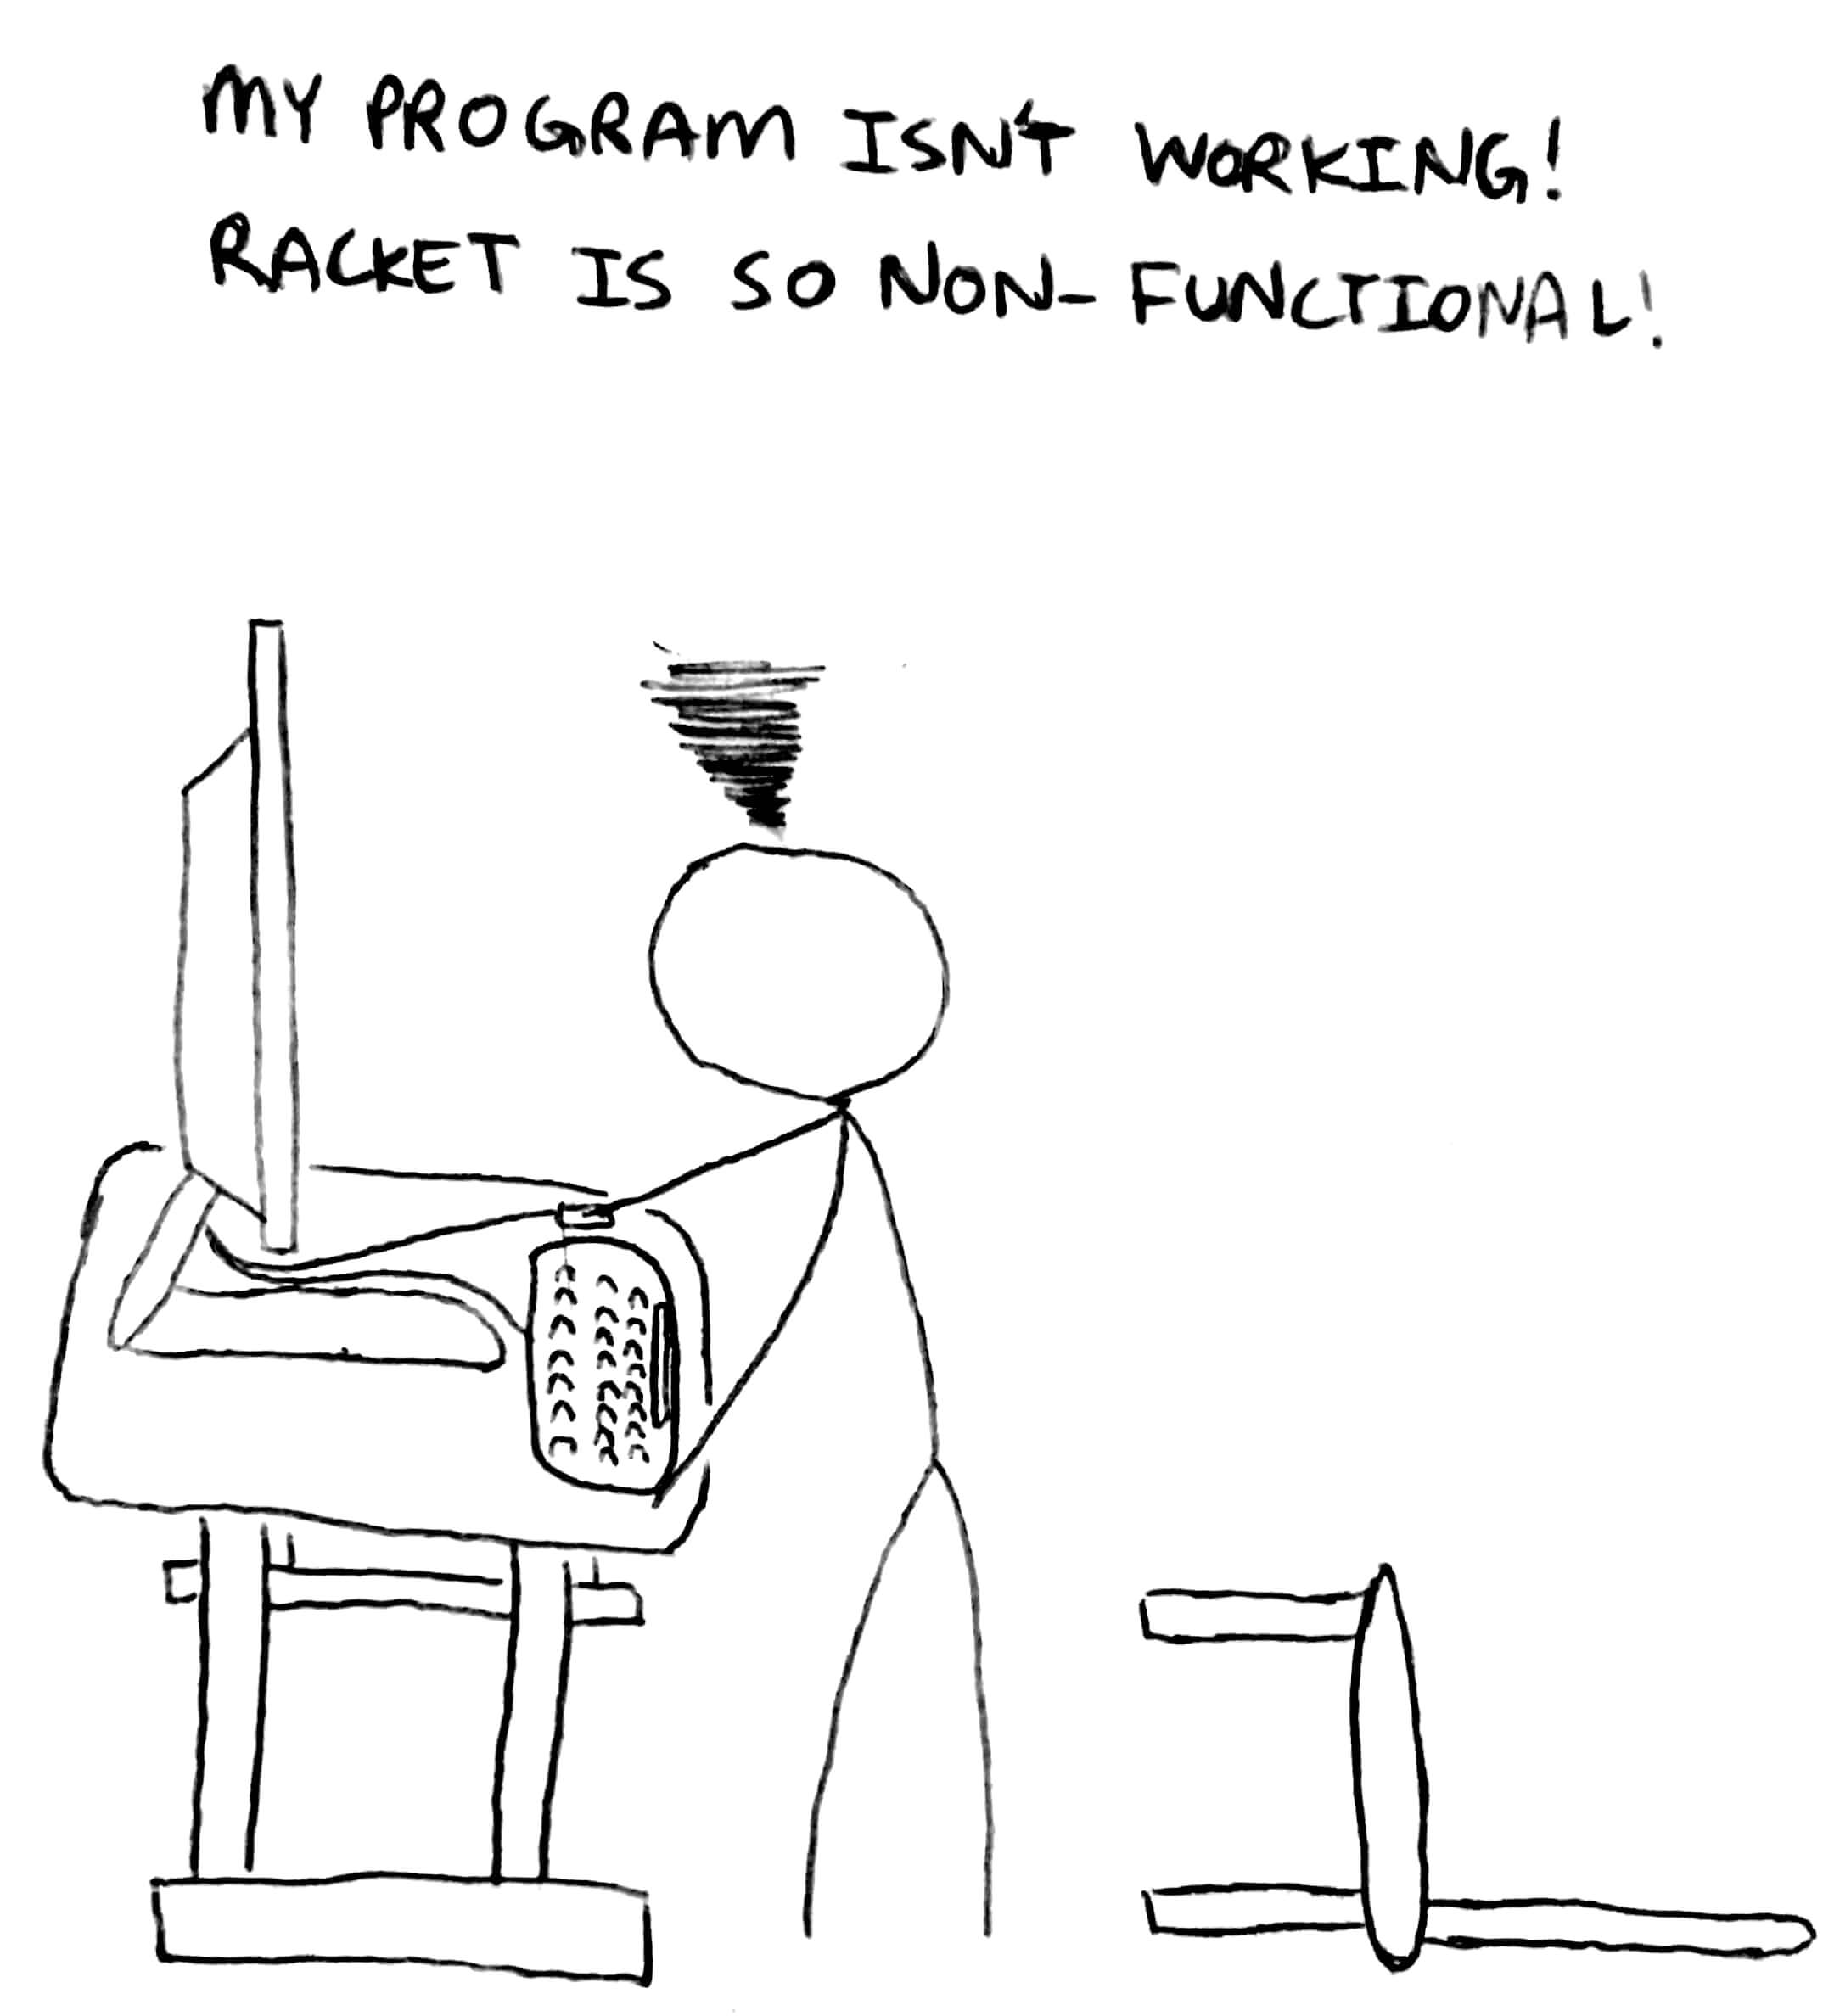 MY PROGRAM ISN'T WORKING!
RACKET IS SO NON-FUNCTIONAL!